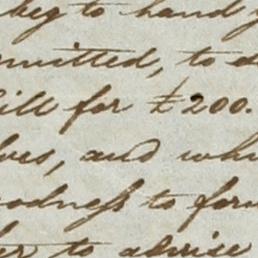 beg to hand
mitted, to
ill for £200.
lves, and whi
oodness to forw
er to advise